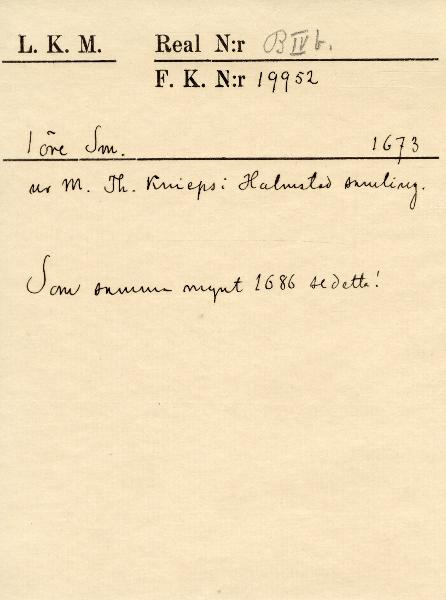 L. K. M. Real N:r B IV b.
F. K. N:r 19952
1 öre Sm. 1673
ur M. Th. Knieps i Halmstad samling.
Som samma mynt 1686 se detta!